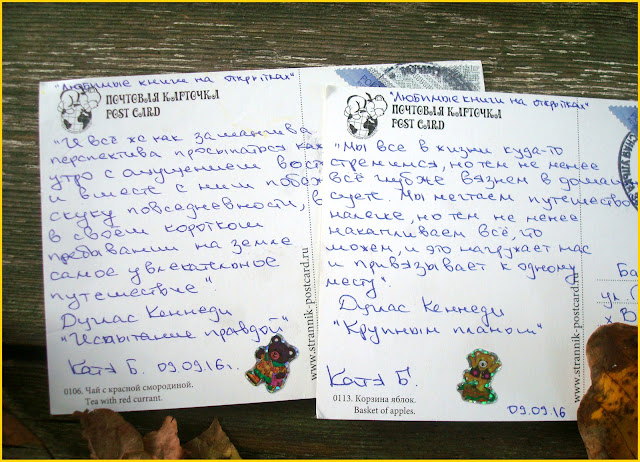 "Любимые книги на открытках"
ПОЧТОВАЯ КАРТОЧКА
POST CARD
"И всё же как заманчива
перспектива просыпаться
утро с ощущением
и вместе с ним
скуку повседневности,
в своём коротком
пребывании на земле
самое увлекательное
путешествие".
Дуглас Кеннеди
"Испытание правдой"
Катя Б. 09.09.16г.
0106. Чай с красной смородиной.
Tea with red currant.
www.strannik-postcard.ru
"Любимые книги на открытках"
ПОЧТОВАЯ КАРТОЧКА
POST CARD
"Мы все в жизни куда-то
стремимся, но тем не менее
всё глубже вязнем в
суете. Мы мечтаем
налегке, но тем не менее
накапливаем всё, что
можем, и это нагружает нас
и привязывает к одному
месту".
Дуглас Кеннеди
"Крупным планом"
Катя Б.
09.09.16
0113. Корзина яблок.
Basket of apples.
www.strannik-postcard.ru
Ба
ул.
х. В